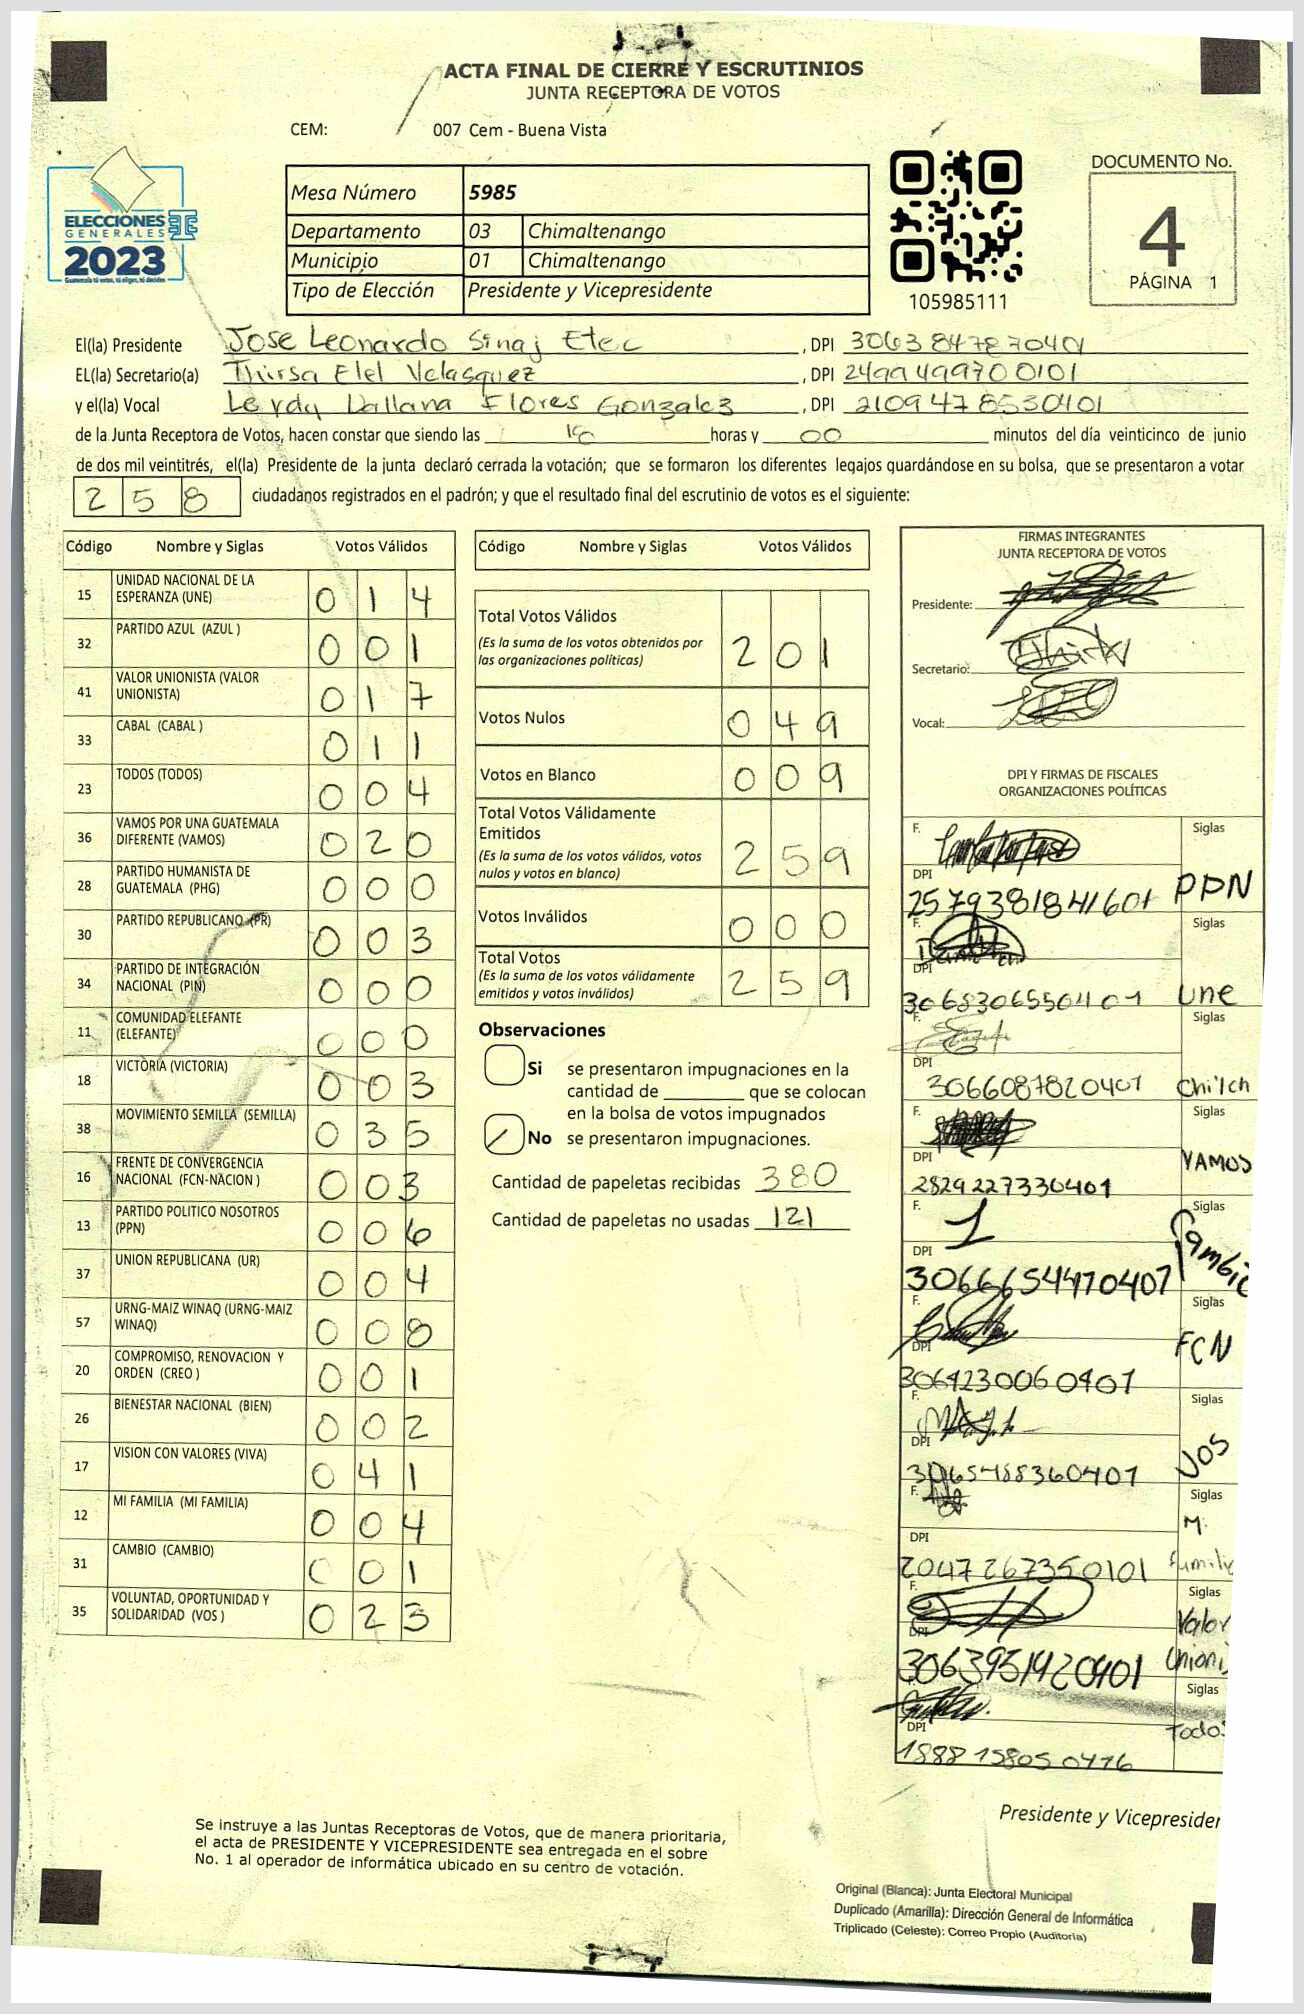 ACTA FINAL DE CIERRE Y ESCRUTINIOS
JUNTA RECEPTORA DE VOTOS
CEM: 007 Cem - Buena Vista
ELECCIONES
GENERALES
2023
Guatemala tú votas, tú eliges, tú decides
Mesa Número 5985
Departamento 03 Chimaltenango
Municipio 01 Chimaltenango
Tipo de Elección Presidente y Vicepresidente
105985111
DOCUMENTO No.
4
PÁGINA 1
El(la) Presidente Jose Leonardo Sinaj Etec , DPI 3063847870401
EL(la) Secretario(a) Thirsa Elel Velasquez , DPI 2499499700101
y el(la) Vocal Dallana Flores Gonzalez , DPI 2109478530401
de la Junta Receptora de Votos, hacen constar que siendo las horas y 00 minutos del día veinticinco de junio
de dos mil veintitrés, el(la) Presidente de la junta declaró cerrada la votación; que se formaron los diferentes legajos guardándose en su bolsa, que se presentaron a votar
258 ciudadanos registrados en el padrón; y que el resultado final del escrutinio de votos es el siguiente:
Código Nombre y Siglas Votos Válidos
15 UNIDAD NACIONAL DE LA ESPERANZA (UNE) 014
32 PARTIDO AZUL (AZUL ) 001
41 VALOR UNIONISTA (VALOR UNIONISTA) 017
33 CABAL (CABAL ) 011
23 TODOS (TODOS) 004
36 VAMOS POR UNA GUATEMALA DIFERENTE (VAMOS) 020
28 PARTIDO HUMANISTA DE GUATEMALA (PHG) 000
30 PARTIDO REPUBLICANO (PR) 003
34 PARTIDO DE INTEGRACIÓN NACIONAL (PIN) 000
11 COMUNIDAD ELEFANTE (ELEFANTE) 000
18 VICTORIA (VICTORIA) 003
38 MOVIMIENTO SEMILLA (SEMILLA) 035
16 FRENTE DE CONVERGENCIA NACIONAL (FCN-NACION ) 003
13 PARTIDO POLITICO NOSOTROS (PPN) 006
37 UNION REPUBLICANA (UR) 004
57 URNG-MAIZ WINAQ (URNG-MAIZ WINAQ) 008
20 COMPROMISO, RENOVACION Y ORDEN (CREO ) 001
26 BIENESTAR NACIONAL (BIEN) 002
17 VISION CON VALORES (VIVA) 041
12 MI FAMILIA (MI FAMILIA) 004
31 CAMBIO (CAMBIO) 001
35 VOLUNTAD, OPORTUNIDAD Y SOLIDARIDAD (VOS ) 023
Código Nombre y Siglas Votos Válidos
Total Votos Válidos
(Es la suma de los votos obtenidos por las organizaciones políticas) 201
Votos Nulos 049
Votos en Blanco 009
Total Votos Válidamente Emitidos
(Es la suma de los votos válidos, votos nulos y votos en blanco) 259
Votos Inválidos 000
Total Votos
(Es la suma de los votos válidamente emitidos y votos inválidos) 259
Observaciones
Si se presentaron impugnaciones en la
cantidad de ________ que se colocan
en la bolsa de votos impugnados
No se presentaron impugnaciones.
Cantidad de papeletas recibidas 380
Cantidad de papeletas no usadas 121
FIRMAS INTEGRANTES
JUNTA RECEPTORA DE VOTOS
Presidente:
Secretario:
Vocal:
DPI Y FIRMAS DE FISCALES
ORGANIZACIONES POLÍTICAS
F. Siglas
DPI 2579381841601 PPN
F. Siglas
DPI 3068306550401 Une
F. Siglas
DPI 3066087820401 Chilch
F. Siglas
DPI 2829227330401 VAMOS
F. Siglas
DPI 3066654470407 Cambio
F. Siglas
DPI 3064230060401 FCN
F. Siglas
DPI 3065488360401 VOS
F. Siglas
DPI 2047267350101 Mi familia
F. Siglas
DPI 3063951920401 Valor Unionis
F. Siglas
DPI 1888158050416 Todos
Presidente y Vicepresiden
Se instruye a las Juntas Receptoras de Votos, que de manera prioritaria,
el acta de PRESIDENTE Y VICEPRESIDENTE sea entregada en el sobre
No. 1 al operador de informática ubicado en su centro de votación.
Original (Blanca): Junta Electoral Municipal
Duplicado (Amarilla): Dirección General de Informática
Triplicado (Celeste): Correo Propio (Auditoria)